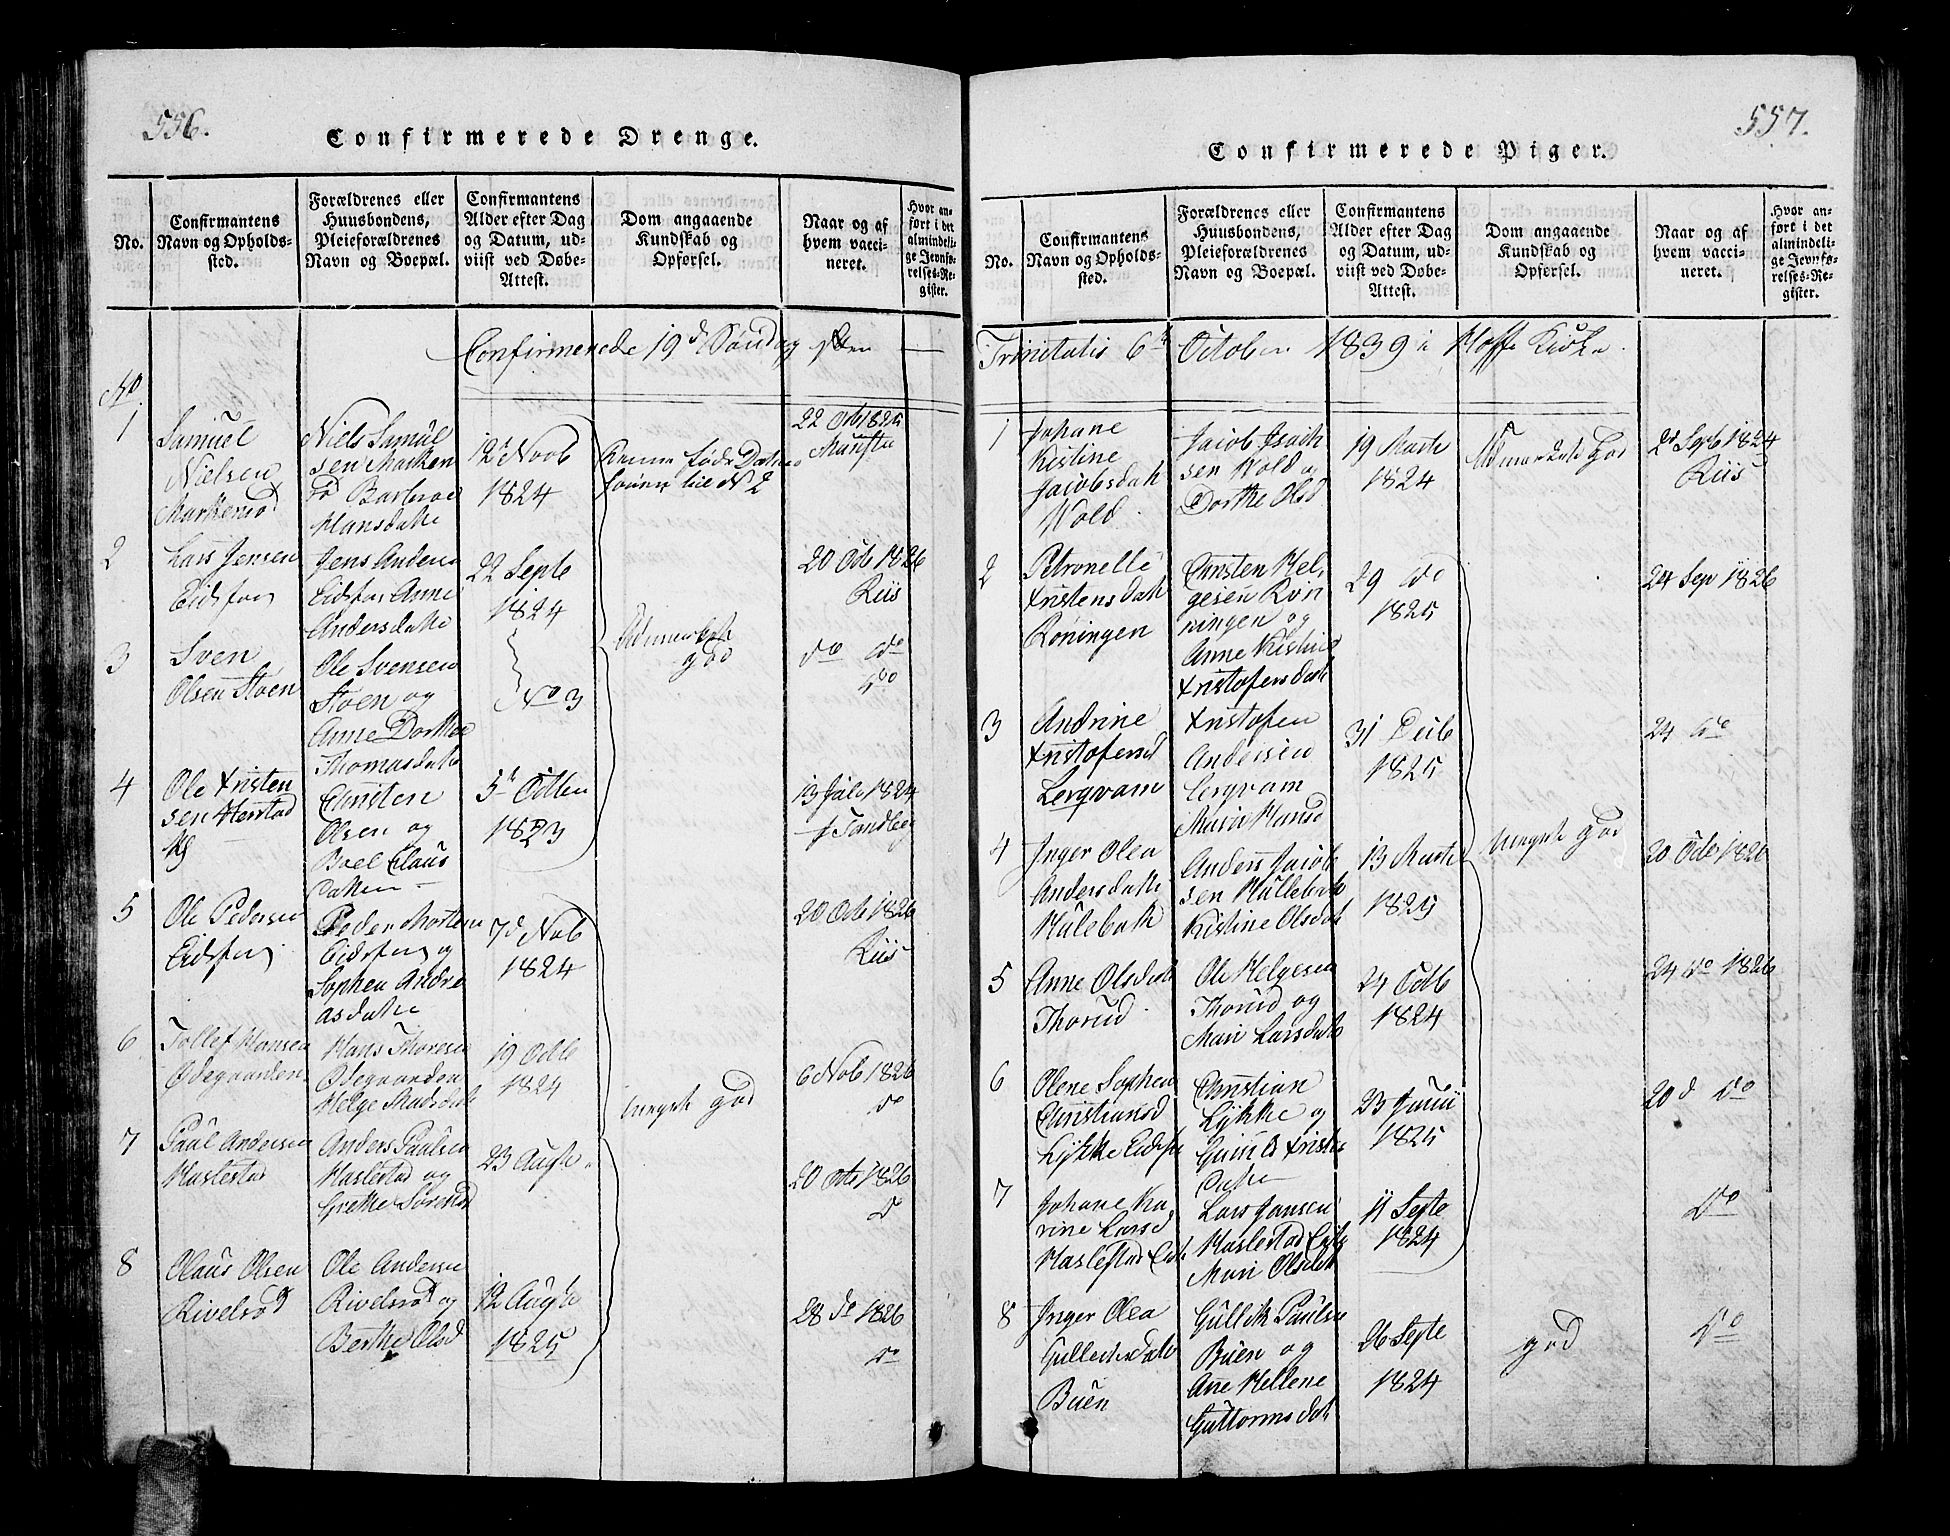 556.
Confirmerede Drenge.
No.
Confirmantens
Navn og Opholds-
sted.
Forældrenes eller
Huusbondens,
Pleieforældrenes
Navn og Boepæl.
Confirmantens
Alder efter Dag
og Datum, ud-
viist ved Døbe-
Attest.
Dom angaaende
Kundskab og
Opførsel.
Naar og af
hvem vacci-
neret.
Hvor an-
ført i det
almindeli-
ge Jevnfø-
relses-Re-
gister.
Confirmerede 19d Søndag
No
1
Samuel
Nielsen
Markerød
Niels Samul
sen Marken
rd Barbroe
Hansdatte
12 Novb
1824
22 Octb 1825
2
Lars Jensen
Eidsfos
Jens Anders
Eidsfos Anne
Andersdatte
22 Septe
1824
20 Octb 1826
Riis
3
Sven
Olsen Stoen
Ole Svensen
Stoen og
Anne Dorthe
Thomasdatte
No 3
Udmerket
god
do do
do
4
Ole Kristen
sen Herstad
Christen
Olsen og
Boel Claus
datter
5t Octbr
1823
13 Juli 1824
f Tandberg
5
Ole Pedersen
Eidsfos
Peder Mortens
Eidsfos og
Sophia Andre
asdatte
7d Novb
1824
20 Octb 1826
Riis
6
Tollef Hansen
Ødegaarden
Hans Thoresen
Ødegaarden
Helge Madsdat
19 Octb
1824
6 Novb 1826
do
meget god
7
Paul Andersen
Haslestad
Anders Paulsen
Haslestad og
Grethe Sørensd
23 Augste
20 Octb 1826
do
8
Olaus Olsen
Rivelsrød
Ole Anderse
Rivelsrød og
Berthe Olsd
12 Augste
1825
28 do 1826
do
557.
Confirmerede Piger.
No.
Confirmantens
Navn og Opholds-
sted.
Forældrenes eller
Huusbondens,
Pleieforældrenes
Navn og Boepæl.
Confirmantens
Alder efter Dag
og Datum, ud-
viist ved Døbe-
Attest.
Dom angaaende
Kundskab og
Opførsel.
Naar og af
hvem vacci-
neret.
Hvor an-
ført i det
almindeli-
ge Jevnfø-
relses-Re-
gister.
Trinitatis 6te October 1839 i Hoffs Kirke.
1
Johane
Kistine
Jacobsdatt
Wold
Jacob Isach
sen Wold og
Dorthe Olsd
19 Marts
1824
Udmærket God
Septb 1824
Riis
2
Petronelle
Kristensdatt
Røningen
Christen Hel
gesen Røn
ningen og
Anne Kistine
Kristofersdatt
29 do
1825
24 Sep 1826
3
Andrine
Kristofersd
Lergvam
Kristofer
Andersen
Lergvam
Maria Hansd
31 Deib
1825
24 do
4
Inger Olea
Andersdatte
Hulebak
Anders Jacob
sen Hullebak
Kistine Olsdat
13 Marts
1825
meget god
20 Octb 1826
5
Anne Olsdatt
Thorud
Ole Helgesen
Thorud og
Mari Larsdatt
24 Octb
1824
24 do 1826
6
Olene Sophia
Christiansd
Lykke Eidsfos
Christian
Lykke og
Kristen
datter
23 Junii
1825
20d do
7
Johane Ka
rine Larsd
Haslestad
Lars Jansen
Haslestad
Mari Olsdatt
11 Septe
1824
do
8
Inger Olea
Gulleichsdatt
Buen
Gullik Paulsen
Buen og
Ane Hellene
Guttormsdat
26 Septe
1824
god
do